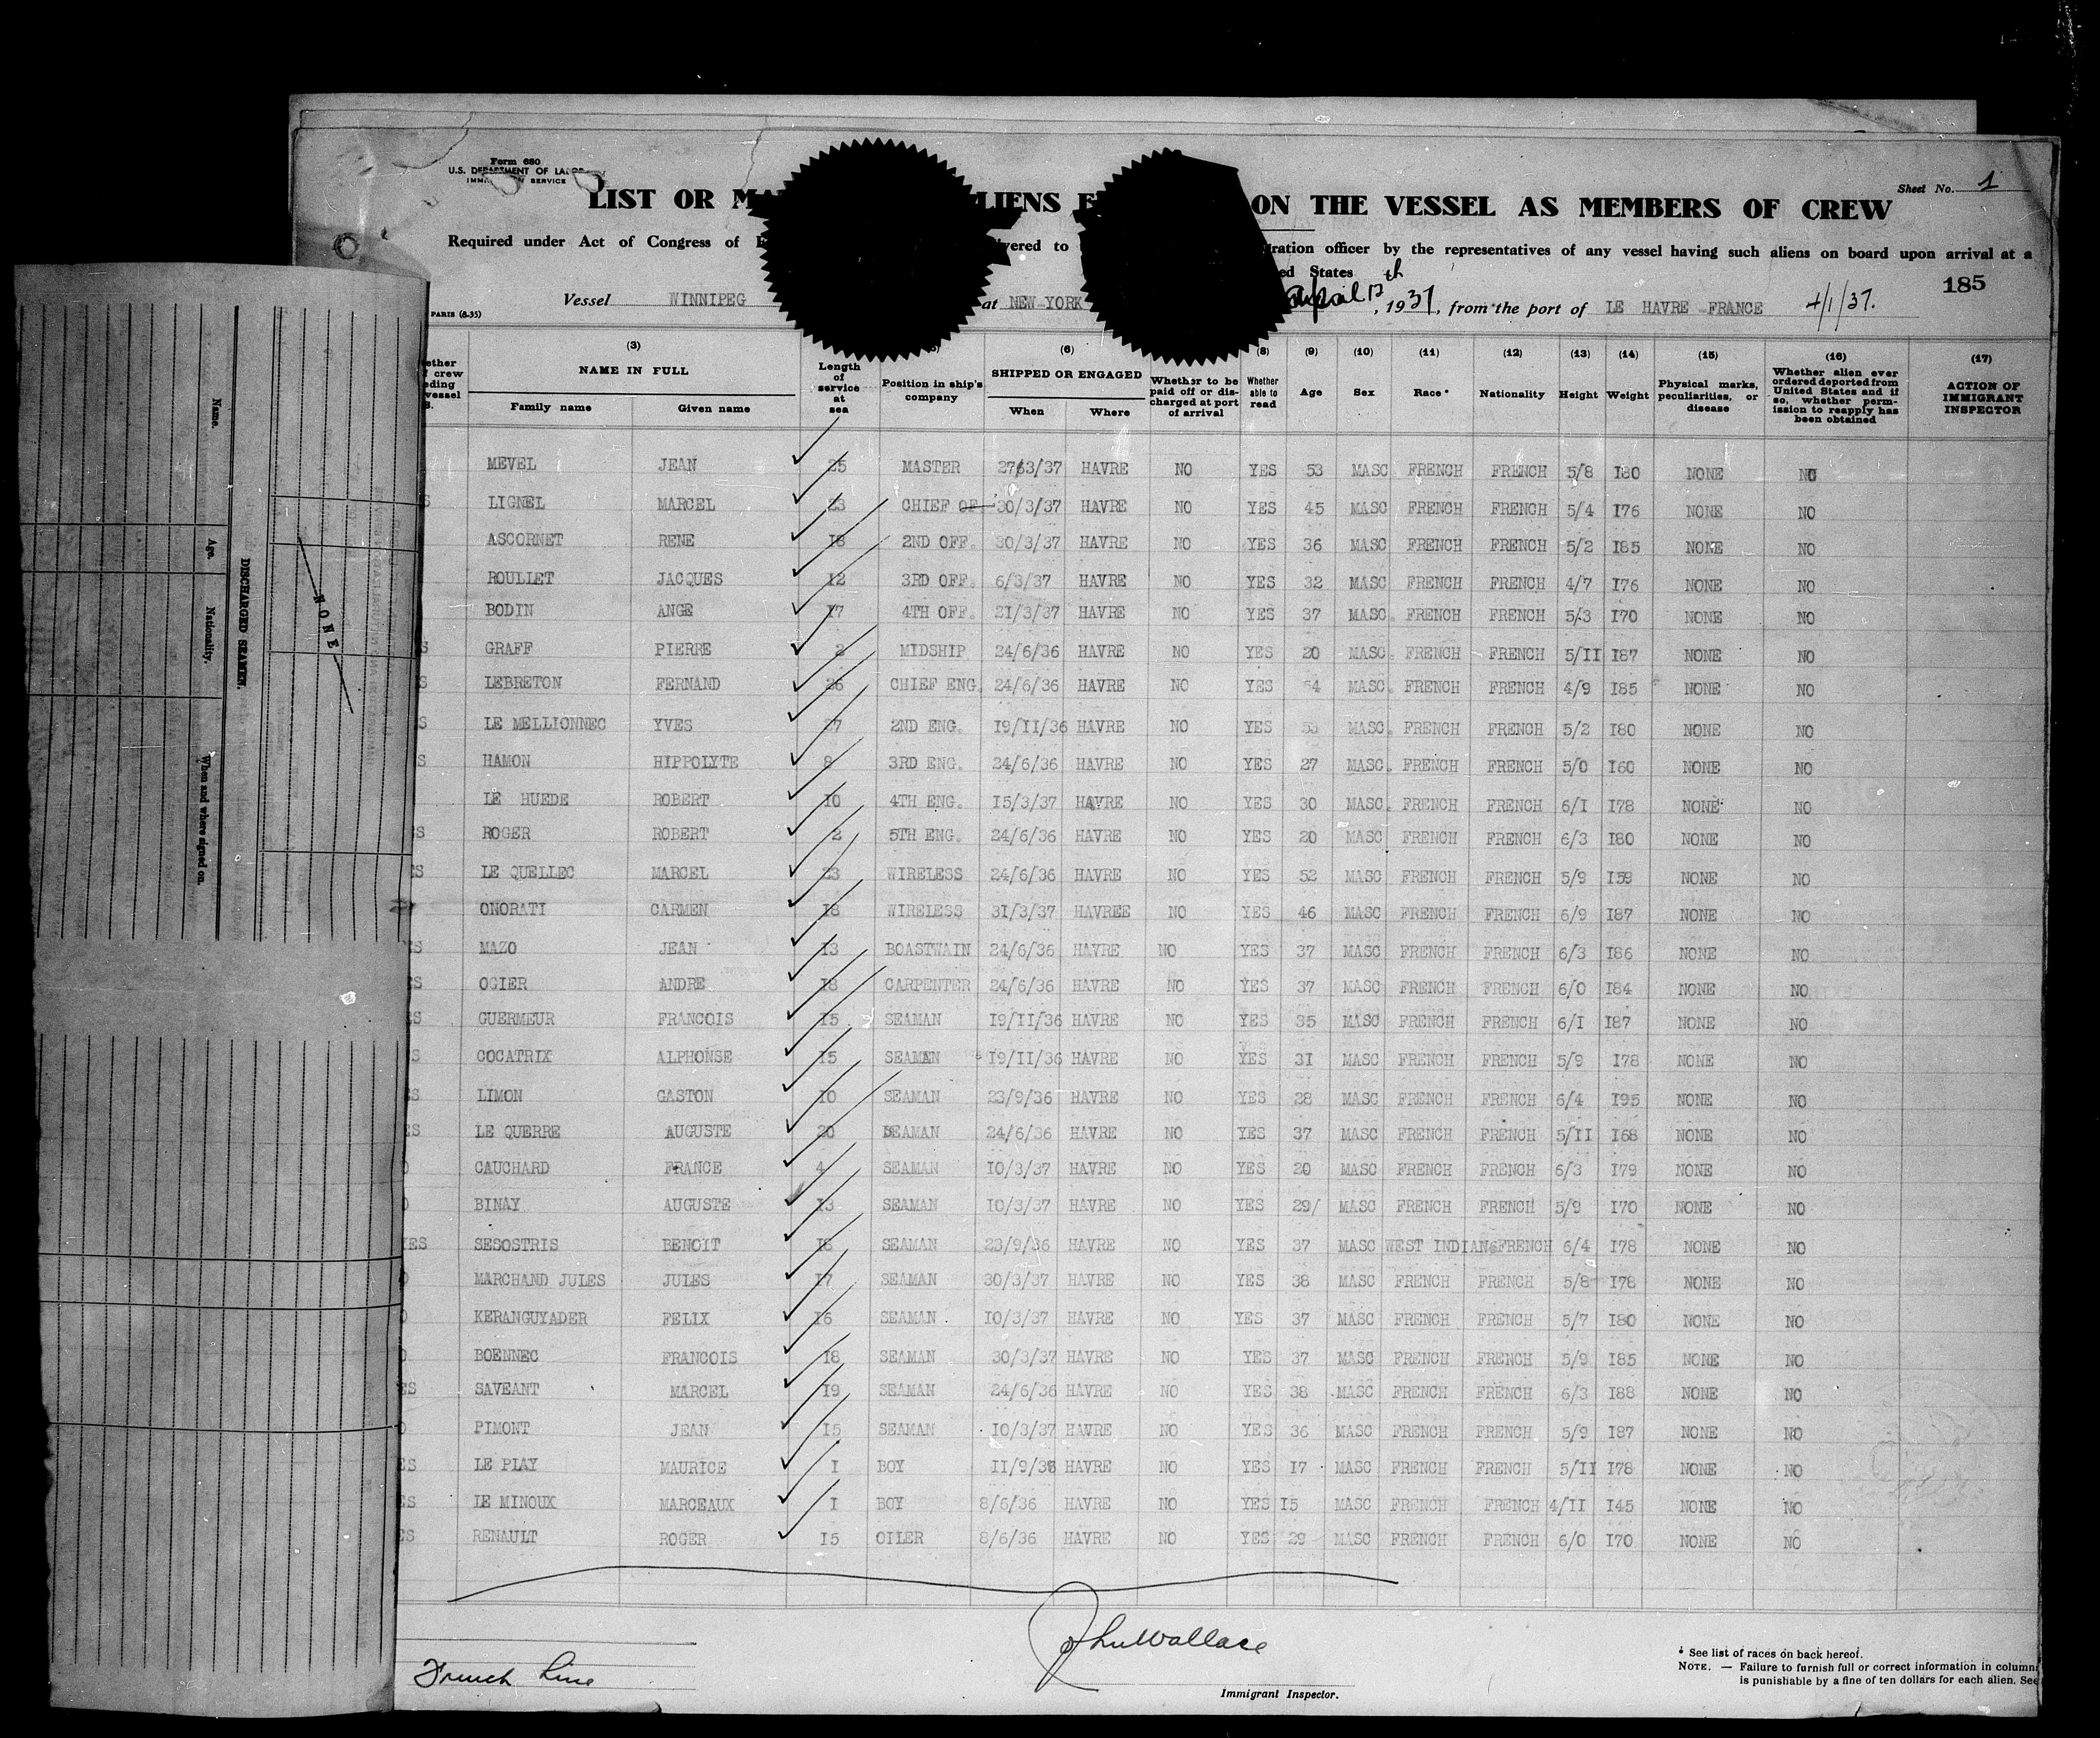 Form 680
U.S. DEPARTMENT OF LABOR
SERVICE
Sheet No. 1
LIST OR ON THE VESSEL AS MEMBERS OF CREW
Required under Act of Congress of to officer by the representatives of any vessel having such aliens on board upon arrival at a
States
185
Vessel WINNIPEG at NEW-YORK April 12th, 1937, from the port of LE HAVRE FRANCE 4/1/37.
PARIS (8-35)
(3) (6) (8) (9) (10) (11) (12) (13) (14) (15) (16) (17)
NAME IN FULL
Family name Given name
Length of service at sea
Position in ship's company
SHIPPED OR ENGAGED
When Where
Whether to be paid off or discharged at port of arrival
Whether able to read
Age Sex Race* Nationality Height Weight
Physical marks, peculiarities, or disease
Whether alien ever ordered deported from United States and if so, whether permission to reapply has been obtained
ACTION OF IMMIGRANT INSPECTOR
MEVEL JEAN 25 MASTER 27/3/37 HAVRE NO YES 53 MASC FRENCH FRENCH 5/8 I80 NONE NO
LIGNEL MARCEL 23 CHIEF OF 30/3/37 HAVRE NO YES 45 MASC FRENCH FRENCH 5/4 I76 NONE NO
ASCORNET RENE I8 2ND OFF. 30/3/37 HAVRE NO YES 36 MASC FRENCH FRENCH 5/2 I85 NOKE NO
ROULIET JACQUES I2 3RD OFF. 6/3/37 HAVRE NO YES 32 MASC FRENCH FRENCH 4/7 I76 NONE NO
BODIN ANGE I7 4TH OFF. 21/3/37 HAVRE NO YES 37 MASC. FRENCH FRENCH 5/3 I70 NONE NO
GRAFF PIERRE 2 MIDSHIP 24/6/36 HAVRE NO YES 20 MASC. FRENCH FRENCH 5/II I87 NONE NO
LEBRETON FERNAND 36 CHIEF ENG. 24/6/36 HAVRE NO YES 54 MASC. FRENCH FRENCH 4/9 I85 NONE NO
LE MELLIONNEC YVES 27 2ND ENG. I9/II/36 HAVRE NO YES MASC. FRENCH FRENCH 5/2 I80 NONE NO
HAMON HIPPOLYTE 8 3RD ENG. 24/6/36 HAVRE NO YES 27 MASC. FRENCH FRENCH 5/0 I60 NONE NO
LE HUEDE ROBERT IO 4TH ENG. I5/3/37 HAVRE NO YES 30 MASC. FRENCH FRENCH 6/I I78 NONE NO
ROGER ROBERT 2 5TH ENG. 24/6/36 HAVRE NO YES 20 MASC FRENCH FRENCH 6/3 I80 NONE NO
LE QUELLEC MARCEL 23 WIRELESS 24/6/36 HAVRE NO YES 52 MASC FRENCH FRENCH 5/9 I59 NONE NO
ONORATI CARMEN I8 WIRELESS 3I/3/37 HAVREE NO YES 46 MASC FRENCH FRENCH 6/9 I87 NONE NO
MAZO JEAN I3 BOASTWAIN 24/6/36 HAVRE NO YES 37 MASC FRENCH FRENCH 6/3 I86 NONE NO
OGIER ANDRE I8 CARPENTER 24/6/36 HAVRE NO YES 37 MASC FRENCH FRENCH 6/0 I84 NONE NO
GUERMEUR FRANCOIS I5 SEAMAN I9/II/36 HAVRE NO YES 35 MASC FRENCH FRENCH 6/I I87 NONE NO
COCATRIX ALPHONSE I5 SEAMAN I9/II/36 HAVRE NO YES 3I MASC FRENCH FRENCH 5/9 I78 NONE NO
LIMON GASTON IO SEAMAN 23/9/36 HAVRE NO YES 28 MASC FRENCH FRENCH 6/4 I95 NONE NO
LE QUERRE AUGUSTE 20 SEAMAN 24/6/36 HAVRE NO YES 37 MASC FRENCH FRENCH 5/II I68 NONE NO
CAUCHARD FRANCE 4 SEAMAN IO/3/37 HAVRE NO YES 20 MASC FRENCH FRENCH 6/3 I79 NONE NO
BINAY AUGUSTE I3 SEAMAN IO/3/37 HAVRE NO YES 29/ MASC FRENCH FRENCH 5/9 I70 NONE NO
SESOSTRIS BENOIT I8 SEAMAN 23/9/36 HAVRE NO YES 37 MASC WEST INDIANS FRENCH 6/4 I78 NONE NO
MARCHAND JULES JULES I7 SEAMAN 30/3/37 HAVRE NO YES 38 MASC FRENCH FRENCH 5/8 I78 NONE NO
KERANGUYADER FELIX I6 SEAMAN IO/3/37 HAVRE NO YES 37 MASC FRENCH FRENCH 5/7 I80 NONE NO
BOENNEC FRANCOIS I8 SEAMAN 30/3/37 HAVRE NO YES 37 MASC FRENCH FRENCH 5/9 I85 NONE NO
SAVEANT MARCEL I9 SEAMAN 24/6/36 HAVRE NO YES 38 MASC FRENCH FRENCH 6/3 I88 NONE NO
PIMONT JEAN I5 SEAMAN IO/3/37 HAVRE NO YES 36 MASC FRENCH FRENCH 5/9 I87 NONE NO
LE PLAY MAURICE I BOY II/9/36 HAVRE NO YES I7 MASC FRENCH FRENCH 5/II I78 NONE NO
LE MINOUX MARCEAUX I BOY 8/6/36 HAVRE NO YES I5 MASC FRENCH FRENCH 4/II I45 NONE NO
RENAULT ROGER I5 OILER 8/6/36 HAVRE NO YES 29 MASC FRENCH FRENCH 6/0 I70 NONE NO
John Wallace
Immigrant Inspector.
French Line
* See list of races on back hereof.
NOTE. — Failure to furnish full or correct information in column
is punishable by a fine of ten dollars for each alien. See
DISCHARGED SEAMEN.
Name. Age. Nationality. When and where signed on.
NONE